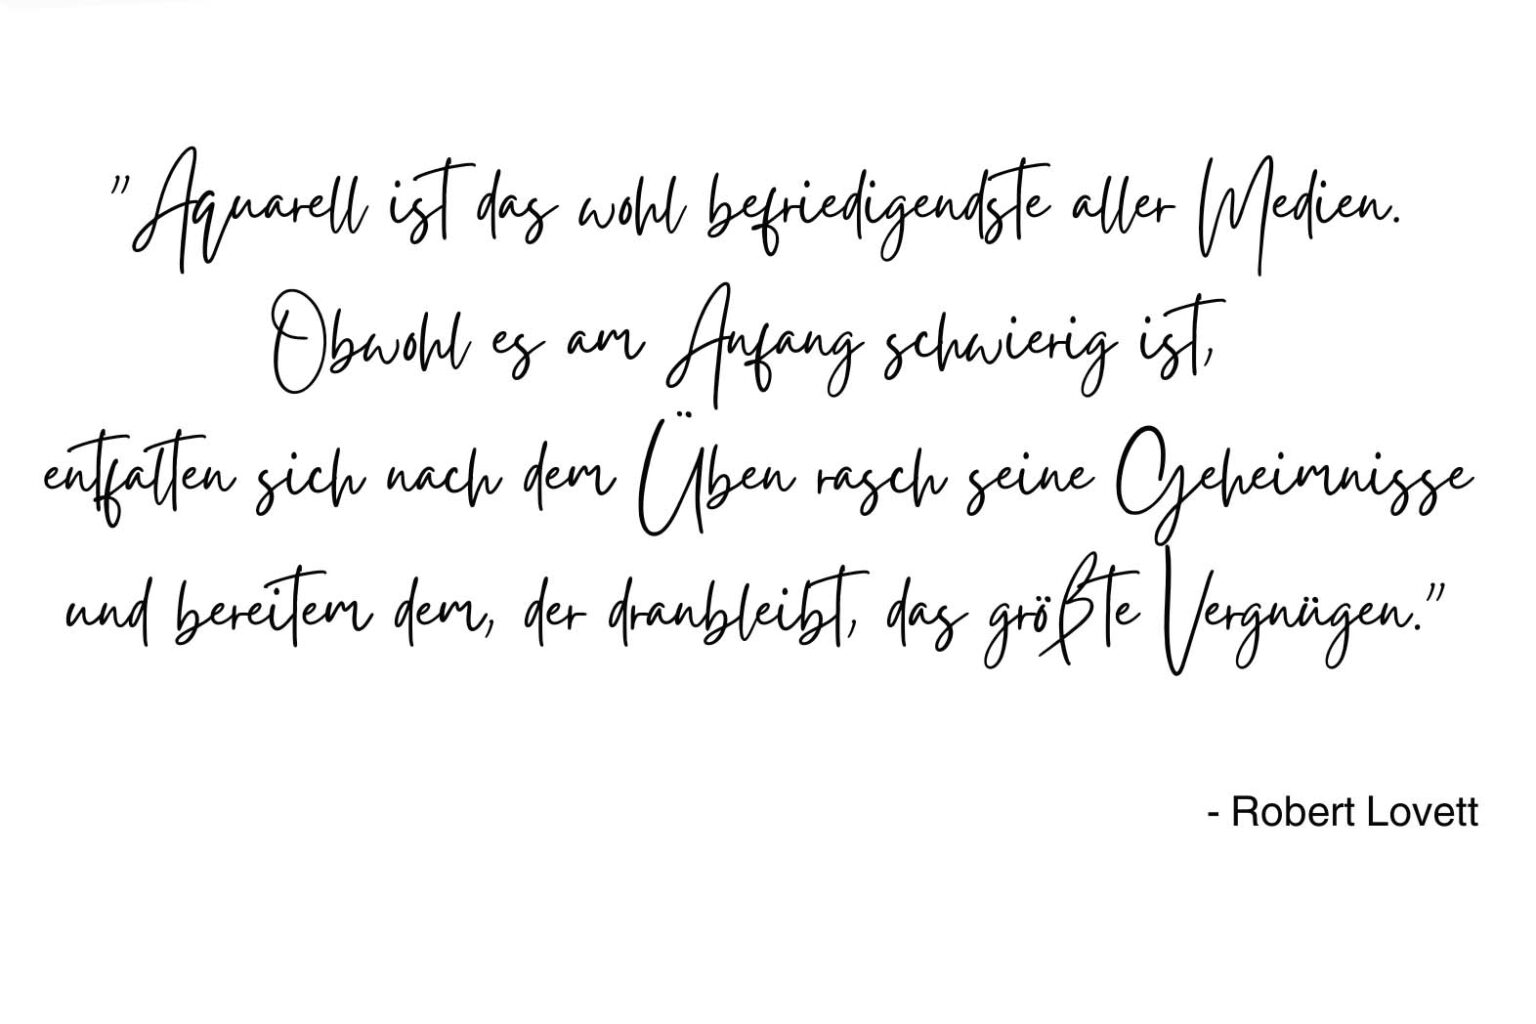 "Aquarell ist das wohl befriedigendste aller Medien.
Obwohl es am Anfang schwierig ist,
entfalten sich nach dem Üben rasch seine Geheimnisse
und bereitem dem, der dranbleibt, das größte Vergnügen."
- Robert Lovett